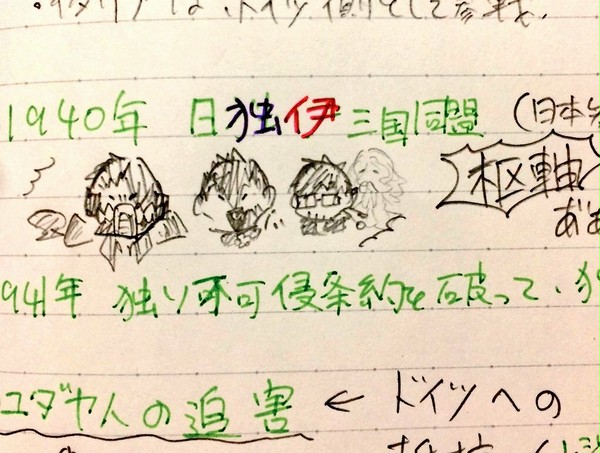 ・イタリアは、ドイツ側として参戦.
1940年 日独伊三国同盟 (日本
枢軸
941年 独ソ不可侵条約を破って、独
ユダヤ人の迫害 ← ドイツへの